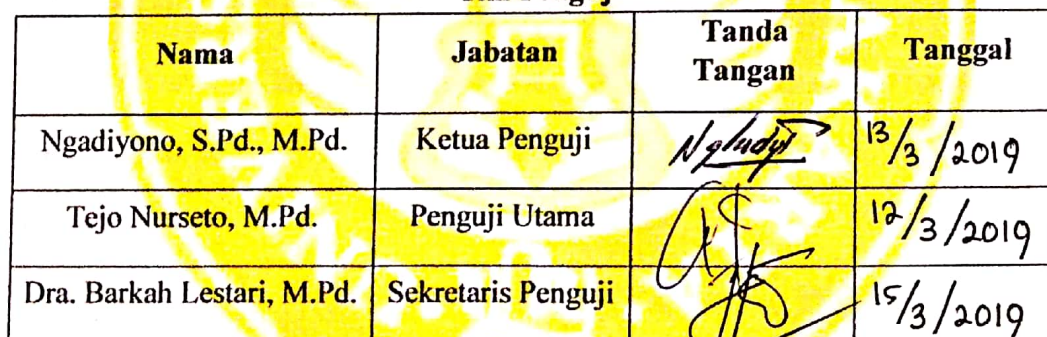 Nama Jabatan Tanda Tangan Tanggal
Ngadiyono, S.Pd., M.Pd. Ketua Penguji 13/3/2019
Tejo Nurseto, M.Pd. Penguji Utama 12/3/2019
Dra. Barkah Lestari, M.Pd. Sekretaris Penguji 15/3/2019